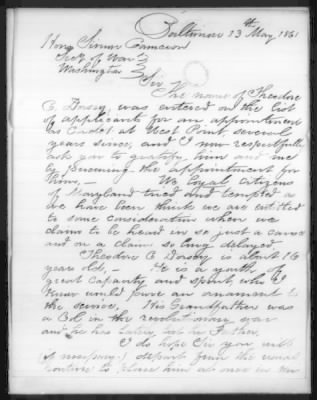 Baltimore 13th May 1861
Hon. Simon Cameron
Secy of War
Washington
Sir
The name of Theodore
C Dorsey was entered on the list
of applicants for an appointment
as Cadet at West Point several
years since, and I now respectfully
ask you to gratify him and me
by the appointment for
him, — We loyal citizens
of Maryland tried and tempted as
we have been think we are entitled
to some consideration when we
claim to be heard in so just a cause
and on a claim so long delayed
Theodore C Dorsey is about 16
year old, — He is a youth of
great capacity and spirit, who I
know would prove an ornament to
the service. His Grandfather was
a Col in the revolutionary war
and he has lost his Father,
I do hope Sir you will
depart from the usual
routine to place him at once in